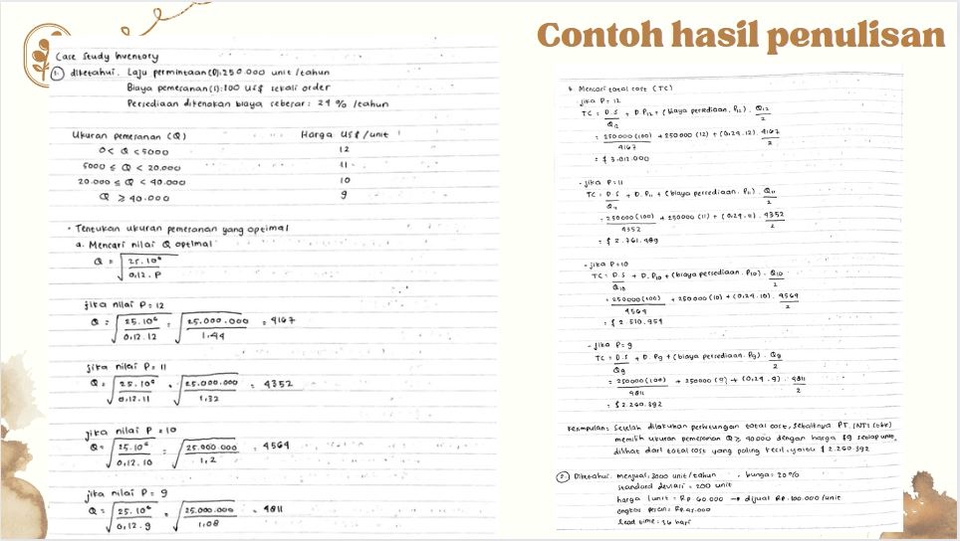 Contoh hasil penulisan
Case Study Inventory
1. diketahui. Laju permintaan (D): 250.000 unit /tahun
Biaya pemesanan (s): 100 US$ sekali order
Persediaan dikenakan biaya sebesar: 24 % /tahun
Ukuran pemesanan (Q) Harga US$ /unit
0 < Q < 5000 12
5000 ≤ Q < 20.000 11
20.000 ≤ Q < 40.000 10
Q ≥ 40.000 9
• Tentukan ukuran pemesanan yang optimal
a. Mencari nilai Q optimal
Q = √ 25.10⁶ / 0,12.P
jika nilai P = 12
Q = √ 25.10⁶ / 0,12.12 = √ 25.000.000 / 1,44 = 4167
jika nilai P = 11
Q = √ 25.10⁶ / 0,12.11 = √ 25.000.000 / 1,32 = 4352
jika nilai P = 10
Q = √ 25.10⁶ / 0,12.10 = √ 25.000.000 / 1,2 = 4564
jika nilai P = 9
Q = √ 25.10⁶ / 0,12.9 = √ 25.000.000 / 1,08 = 4811
b. Mencari total cost (TC)
- jika P = 12
TC = D.S / Q₁₂ + D.P₁₂ + (biaya persediaan. P₁₂). Q₁₂ / 2
= 250000 (100) / 4167 + 250000 (12) + (0,24.12). 4167 / 2
= $ 3.012.000
- jika P = 11
TC = D.S / Q₁₁ + D.P₁₁ + (biaya persediaan. P₁₁). Q₁₁ / 2
= 250000 (100) / 4352 + 250000 (11) + (0,24.11). 4352 / 2
= $ 2.761.489
- jika P = 10
TC = D.S / Q₁₀ + D.P₁₀ + (biaya persediaan. P₁₀). Q₁₀ / 2
= 250000 (100) / 4564 + 250000 (10) + (0,24.10). 4564 / 2
= $ 2.510.954
- jika P = 9
TC = D.S / Q₉ + D.P₉ + (biaya persediaan. P₉). Q₉ / 2
= 250000 (100) / 4811 + 250000 (9) + (0,24.9). 4811 / 2
= $ 2.260.392
Kesimpulan: Setelah dilakukan perhitungan total cost, sebaiknya PT. INTI (tbk)
memilih ukuran pemesanan Q ≥ 40000 dengan harga $9 setiap unit,
dilihat dari total cost yang paling kecil, yaitu $ 2.260.392
2. Diketahui: menjual: 3000 unit/tahun . bunga: 20%
standard deviasi = 200 unit
harga 1 unit = Rp. 60.000 → dijual Rp. 100.000 /unit
ongkos pesan: Rp.
lead time = 36 hari